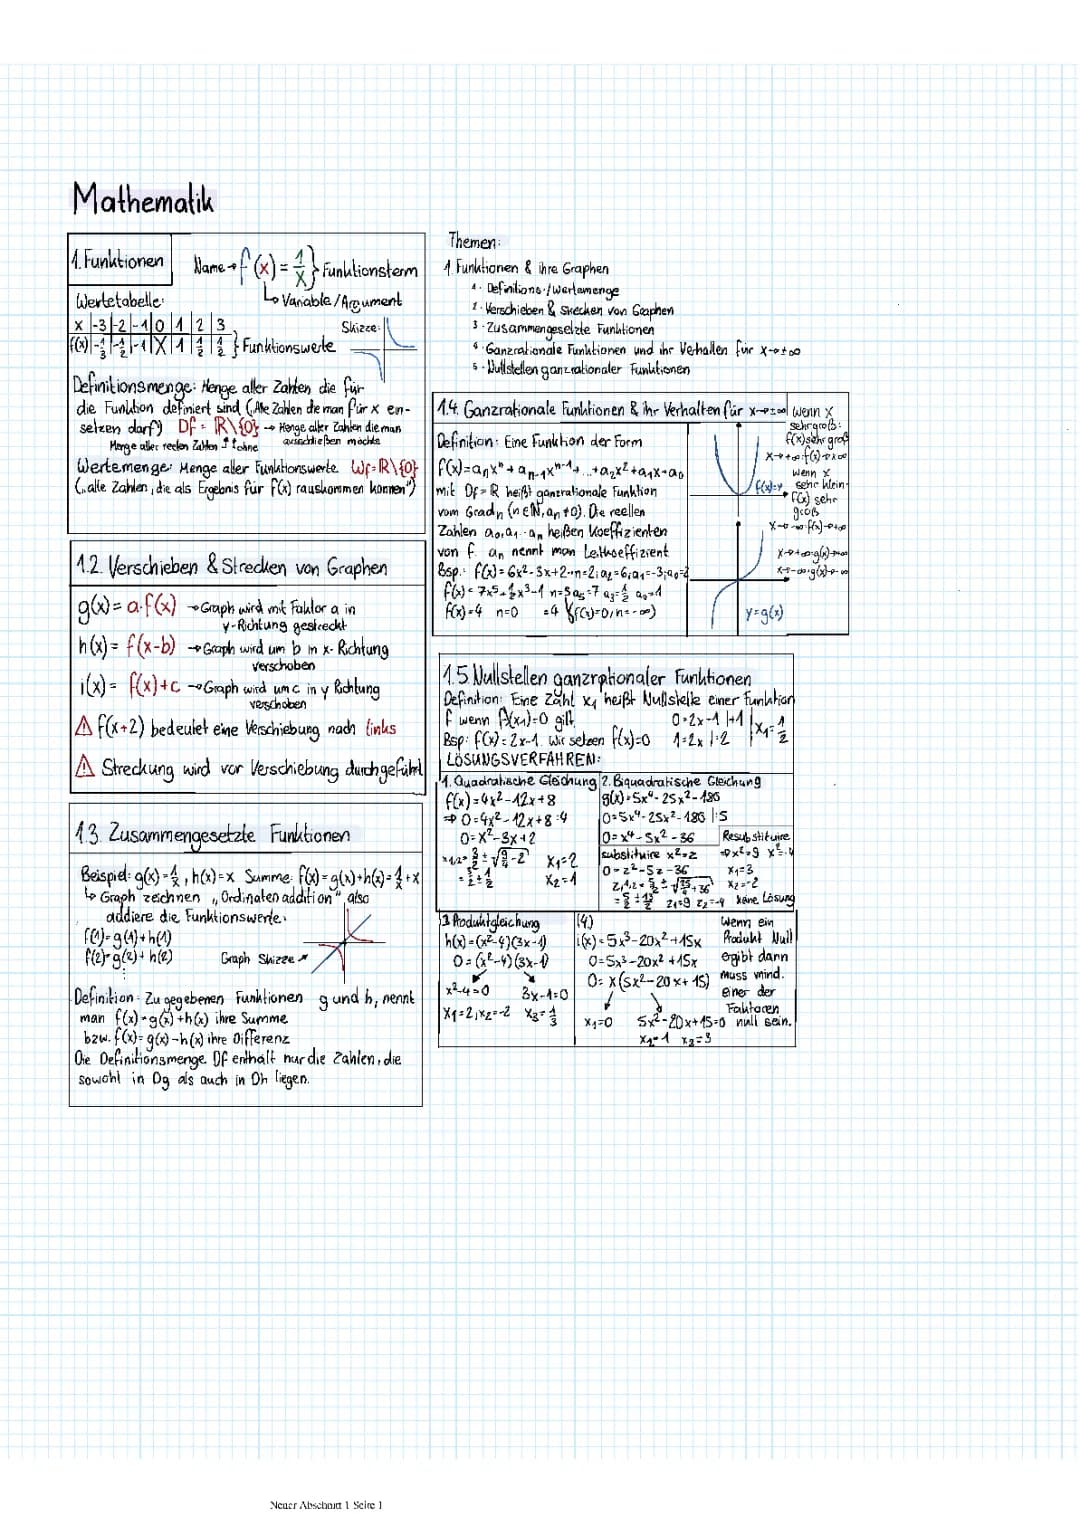 Mathematik
1. Funktionen
Name → f(x) = 1/x } Funktionsterm
↳ Variable/Argument
Wertetabelle:
x |-3|-2|-1|0|1|2|3
f(x)|-1/3|-1/2|-1|X|1|1/2|1/3 } Funktionswerte
Skizze:
Definitionsmenge: Menge aller Zahlen die für
die Funktion definiert sind (Alle Zahlen die man für x ein-
setzen darf) Df = ℝ\{0} → Menge aller Zahlen die man
Menge aller reellen Zahlen ↑ ↑ohne ausschließen möchte
Wertemenge: Menge aller Funktionswerte. Wf=ℝ\{0}
(„alle Zahlen, die als Ergebnis für f(x) rauskommen können")
1.2. Verschieben & Strecken von Graphen
g(x) = a·f(x) → Graph wird mit Faktor a in
y-Richtung gestreckt
h(x) = f(x-b) → Graph wird um b in x-Richtung
verschoben
i(x) = f(x)+c → Graph wird um c in y Richtung
verschoben
⚠ f(x+2) bedeutet eine Verschiebung nach links
⚠ Streckung wird vor Verschiebung durchgeführt
1.3. Zusammengesetzte Funktionen
Beispiel: g(x) = 1/x, h(x)=x Summe: f(x)=g(x)+h(x)= 1/x + x
↳ Graph zeichnen „Ordinatenaddition" also
addiere die Funktionswerte:
f(1)=g(1)+h(1)
f(2)=g(2)+h(2)
⋮
Graph Skizze ↗
Definition: Zu gegebenen Funktionen g und h, nennt
man f(x)=g(x)+h(x) ihre Summe
bzw. f(x)=g(x)-h(x) ihre Differenz
Die Definitionsmenge Df enthält nur die Zahlen, die
sowohl in Dg als auch in Dh liegen.
Themen:
1. Funktionen & ihre Graphen
1. Definitions-/Wertemenge
2. Verschieben & Strecken von Graphen
3. Zusammengesetzte Funktionen
4. Ganzrationale Funktionen und ihr Verhalten für x→±∞
5. Nullstellen ganzrationaler Funktionen
1.4. Ganzrationale Funktionen & ihr Verhalten für x→±∞
Definition: Eine Funktion der Form
f(x)=aₙxⁿ+aₙ₋₁xⁿ⁻¹+...+a₂x²+a₁x+a₀
mit Df=ℝ heißt ganzrationale Funktion
vom Grad n (n∈ℕ, aₙ≠0). Die reellen
Zahlen a₀,a₁...aₙ heißen Koeffizienten
von f. aₙ nennt man Leitkoeffizient
Bsp.: f(x)=6x²-3x+2→n=2; a₂=6; a₁=-3; a₀=2
f(x)=7x⁵+1/2x³-1 n=5 a₅=7 a₃=1/2 a₀=-1
f(x)=4 n=0 =4 (f(x)=0, n=-∞)
wenn x
sehr groß:
f(x) sehr groß
x→+∞: f(x)→+∞
wenn x
sehr klein
→ f(x) sehr
groß
x→-∞: f(x)→+∞
f(x)=y
x→+∞: g(x)→+∞
x→-∞: g(x)→-∞
y=g(x)
1.5 Nullstellen ganzrationaler Funktionen
Definition: Eine Zahl x₁ heißt Nullstelle einer Funktion
f wenn f(x₁)=0 gilt.
Bsp: f(x)=2x-1. Wir setzen f(x)=0
0=2x-1 |+1
1=2x |:2
x₁=1/2
LÖSUNGSVERFAHREN:
1. Quadratische Gleichung
f(x)=4x²-12x+8
⇒ 0=4x²-12x+8 :4
0=x²-3x+2
x1/2= 3/2 ± √(9/4-2)
= 3/2 ± 1/2
x₁=2
x₂=1
2. Biquadratische Gleichung
g(x)=5x⁴-25x²-180
0=5x⁴-25x²-180 |:5
0=x⁴-5x²-36
substituire x²=z
0=z²-5z-36
z1,2= 5/2 ± √(25/4+36)
= 5/2 ± 13/2 z₁=9 z₂=-4
Resubstituire
→ x²=9 x²=-4
x₁=3
x₂=-2
keine Lösung
3 Produktgleichung
h(x)=(x²-4)(3x-1)
0=(x²-4)(3x-1)
x²-4=0 3x-1=0
x₁=2, x₂=-2 x₃=1/3
(4)
i(x)=5x³-20x²+15x
0=5x³-20x²+15x
0=x(5x²-20x+15)
x₁=0 5x²-20x+15=0
x₂=1 x₃=3
Wenn ein
Produkt Null
ergibt dann
muss mind.
einer der
Faktoren
null sein.
Neuer Abschnitt 1 Seite 1